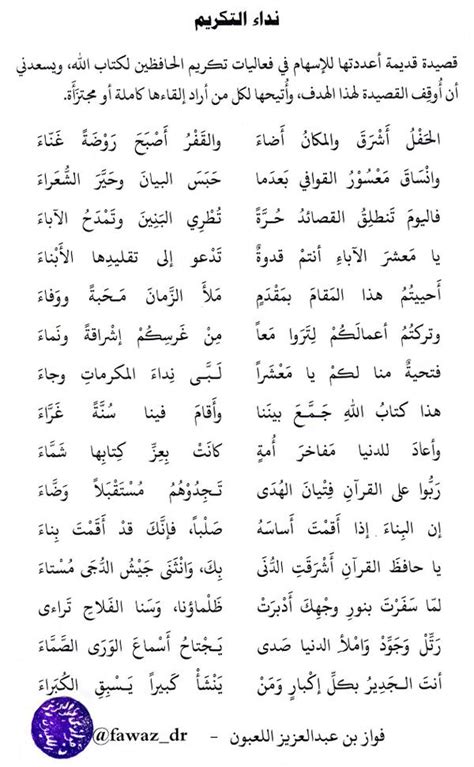 نداء التكريم
قصيدة قديمة أعددتها للإسهام في فعاليات تكريم الحافظين لكتاب الله، ويسعدني
أن أُوقِف القصيدة لهذا الهدف، وأُتيحها لكل من أراد إلقاءها كاملة أو مجتزَأَة.
الحَفْلُ أَشْرَقَ والمكانُ أضاءَ والقَفْرُ أَصْبَحَ رَوْضَةً غَنّاءَ
وانْساقَ مَعْسُوْرُ القوافي بَعدَما حَبَسَ البيانَ وحَيَّرَ الشُّعَراءَ
فاليومَ تَنطلِقُ القصائدُ حُرَّةً تُطْرِي البَنِينَ وتَمْدَحُ الآباءَ
يا مَعشرَ الآباءِ أنتمْ قدوةٌ تَدْعو إلى تقليدِها الأَبْناءَ
أَحييتُمُ هذا المَقامَ بمَقْدَمٍ مَلَأَ الزَّمانَ مَحَبةً ووَفاءَ
وتركتُمُ أعمالَكُمْ لِتَرَوا مَعاً مِنْ غَرسِكُمْ إشْراقةً ونَماءَ
فتحيةٌ منا لكمْ يا مَعْشَراً لَبَّى نِداءَ المكرماتِ وجاءَ
هذا كتابُ اللهِ جَمَّعَ بينَنا وأَقامَ فينا سُنَّةً غَرَّاءَ
وأعادَ للدنيا مَفاخرَ أُمةٍ كانَتْ بِعِزِّ كِتابِها شَمَّاءَ
رَبُّوا على القرآنِ فِتْيانَ الهُدَى تَجِدُوْهُمُ مُسْتَقْبَلاً وَضَّاءَ
إن البِناءَ إذا أَقمْتَ أساسَهُ صَلْباً، فإنَّكَ قدْ أَقَمْتَ بِناءَ
يا حافظَ القرآنِ أَشْرَقَتِ الدُّنَى بِكَ، وَانْثَنَى جَيْشُ الدُّجَى مُستاءَ
لمّا سَفَرْتَ بنورِ وجْهِكَ أَدْبَرَتْ ظَلْماؤنا، وَسَنا الفَلاحِ تَراءى
رَتِّلْ وَجَوِّدْ وَامْلأِ الدنيا صَدى يَجْتاحُ أَسْماعَ الوَرَى الصَّمَّاءَ
أنتَ الجَدِيرُ بكلِّ إكْبارٍ وَمَنْ يَنْشَأْ كَبيراً يَسْبِقِ الكُبَراءَ
فواز بن عبدالعزيز اللعبون - @fawaz_dr